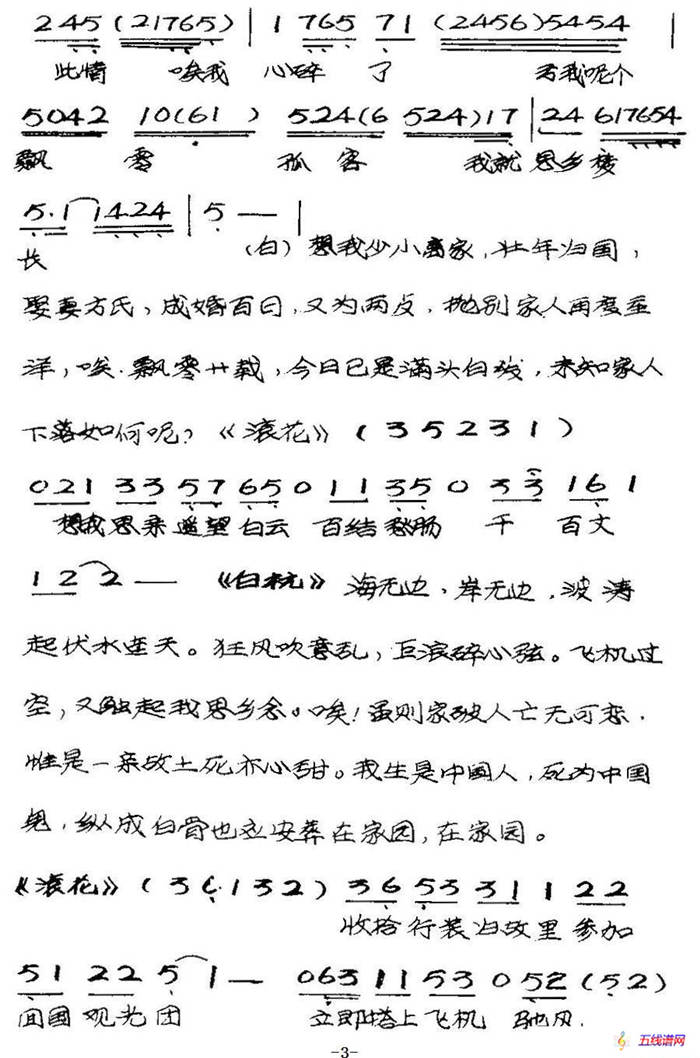 2 4 5 (2 1 7 6 5) | 1 7 6 5 7 1 (2 4 5 6) 5 4 5 4 |
此情 唉我 心碎 了 若我呢个
5 0 4 2 1 0 (6 1) 5 2 4 (6 5 2 4) 1 7 | 2 4 6 1 7 6 5 4
飘 零 孤 客 我就 思乡 梦
5 · 1 1 4 2 4 | 5 — |
长 (白) 想我少小离家，壮年归国，
娶妻方氏，成婚百日，又为两歺，抛别家人再度重
洋，唉．飘零廿载，今日已是满头白发，未知家人
下落如何呢？《滚花》(3 5 2 3 1)
0 2 1 3 3 5 7 6 5 0 1 1 3 5 0 3 3 1 6 1
想我思亲遥望白云 百结愁肠 千 百丈
1 2 2 — 《白杬》海无边，岸无边，波涛
起伏水连天。狂风吹意乱，巨浪碎心弦。飞机过
空，又触起我思乡念。唉！虽则家破人亡无可恋．
惟是一亲故土死亦心甜。我生是中国人，死为中国
鬼，纵成白骨也应安葬在家园，在家园。
《滚花》(3 6 · 1 3 2) 3 6 5 3 3 1 1 2 2
收拾行装归故里 参加
5 1 2 2 5 1 — 0 6 3 1 1 5 3 0 5 2 (5 2)
回国 观光 团 立即搭上飞机 驰风．
-3-
五线谱网